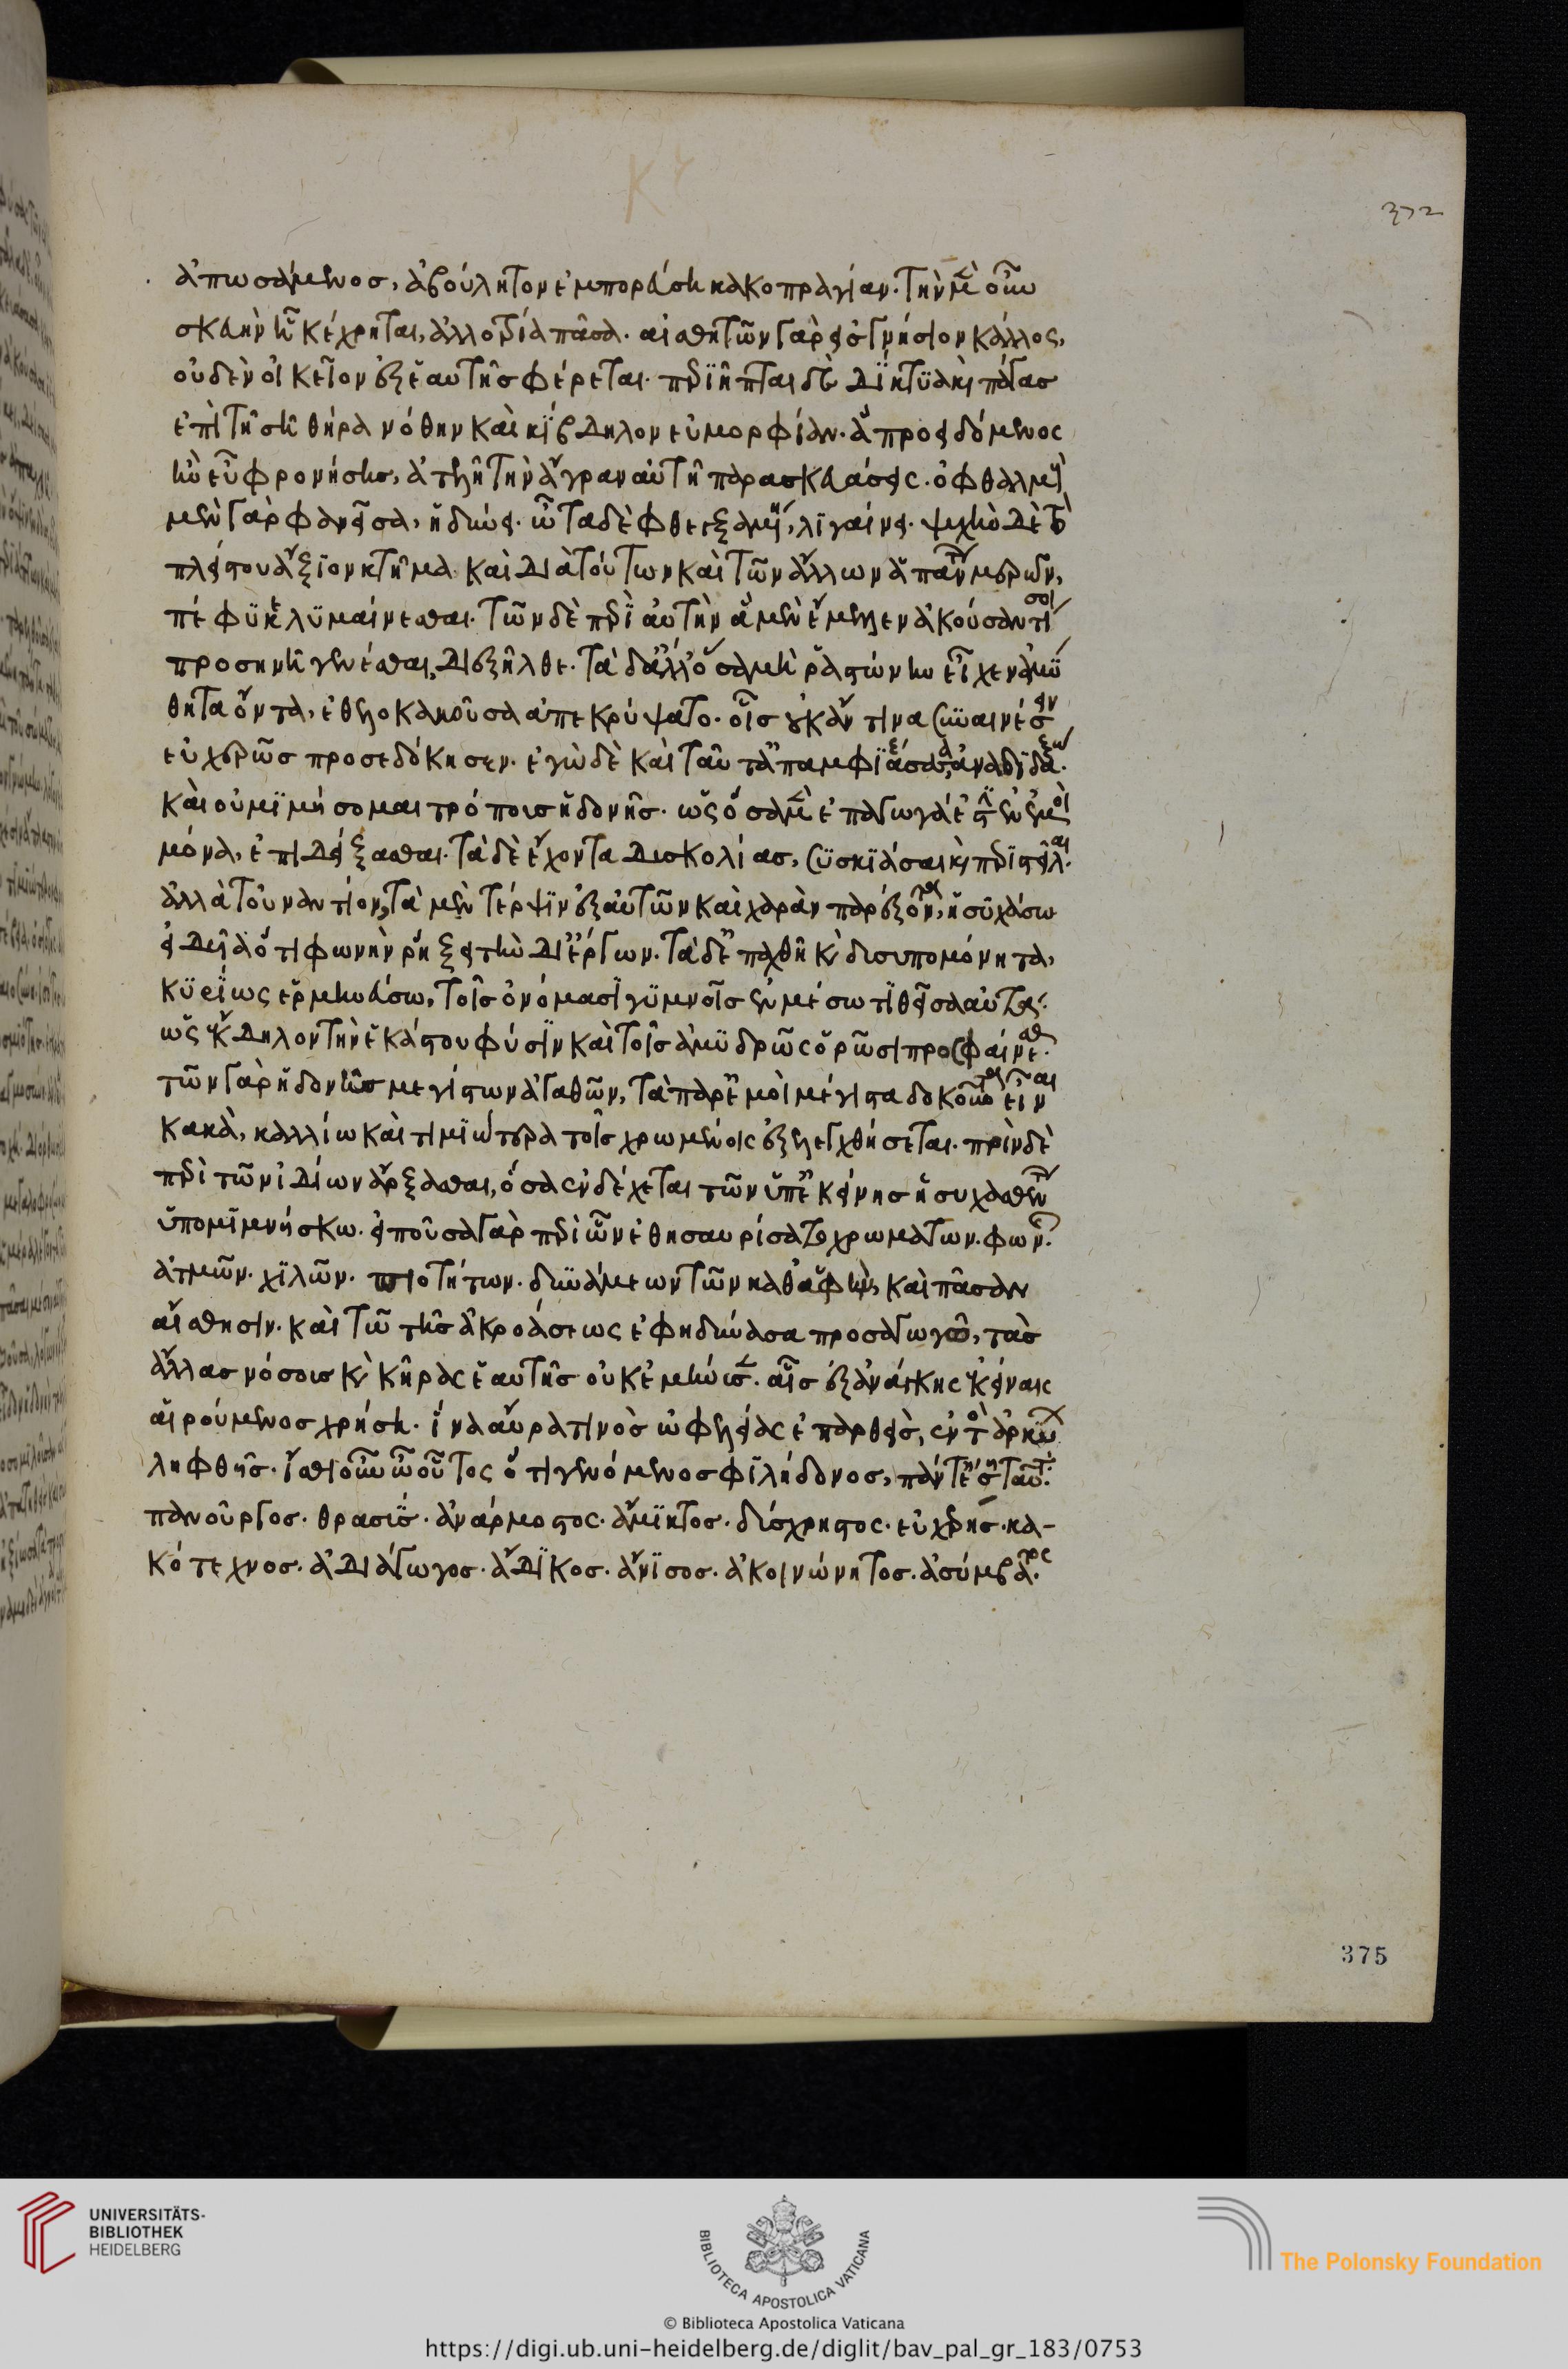 ἀπωσάμενος, ἀβούλητον ἐμπορεύση κακοπραγίαν. τὴν μὲν οὖν
σκευὴν ἧ κέχρηται, ἀλλοτρία πᾶσα. αἰσθητῶν γὰρ εἰς γνήσιον κάλλος,
οὐδὲν οἰκεῖον ἐξ ἑαυτῆς φέρεται. περϊῆπται δὲ δΐκτϋα καὶ πάγας
ἐπὶ τῆ σῆ θήρα νόθην καὶ κΐβδηλον εὐμορφίαν. ἃ προειδόμενος
ἢν εὖ φρονήσης, ἀτελῆ τὴν ἄγραν αὐτῆ παρασκευάσεις. ὀφθαλμοῖς
μὲν γὰρ φανεῖσα, ἡδύνει. ὦτα δὲ φθεγξαμένη, λϊγαίνει. ψυχὴν δὲ τὸ
πλείστου ἄξϊον κτῆμα καὶ διὰ τούτων καὶ τῶν ἄλλων ἁπάντων μερῶν,
πέφϋκε λϋμαίνεσθαι. τῶν δὲ περὶ αὐτὴν ἃ μὲν ἔμελλεν ἀκούσαντί σοι
προσηνῆ γενέσθαι, διεξῆλθε. τὰ δ' ἄλλα ὅσα μὴ ῥαστώνην εἶχεν ἀμϋ
θητα ὄντα, ἐθελοκακοῦσα ἀπεκρύψατο. οἷς οὐκ ἄν τινα συναινέσειν
εὐχερῶς προσεδόκησεν. ἐγὼ δὲ καὶ ταῦτα ἀπαμφϊάσασα, ἀναδείξω.
καὶ οὐ μϊμήσομαι τρόποις ἡδονῆς. ὡς ὅσα μὲν ἐπαγωγά ἐστιν ἐν ἐμοὶ
μόνα, ἐπιδείξασθαι. τὰ δὲ ἔχοντα δυσκολίας, συσκϊάσαι καὶ περϊστεῖλαι.
ἀλλὰ τοὐναντίον, τὰ μὲν τέρψϊν ἐξ αὑτῶν καὶ χαρὰν παρέξοντα, ἡσυχάσω
εἰδυῖα ὅτι φωνὴν ῥήξει τὴν δι' ἔργων. τὰ δ' ἐπαχθῆ καὶ δυσυπομόνητα,
κϋρΐως ἑρμηνεύσω, τοῖς ὀνόμασϊ γϋμνοῖς ἐν μέσω τϊθεῖσα αὐτά.
ὡς ἔκδηλον τὴν ἑκάστου φύσϊν καὶ τοῖς ἀμϋδρῶς ὁρῶσι προσφαίνεσθαι.
τῶν γὰρ ἡδονῆς μεγίστων ἀγαθῶν, τὰ παρ' ἐμοὶ μέγιστα δοκοῦντα εἶναι
κακὰ, καλλίω καὶ τιμϊώτερα τοῖς χρωμένοις ἐξελεγχθήσεται. πρὶν δὲ
περὶ τῶν ἰδίων ἄρξασθαι, ὅσα ἐνδέχεται τῶν ὑπ' ἐκείνης ἡσυχασθέντων
ὑπομϊμνήσκω. εἰποῦσα γὰρ περὶ ὧν ἐθησαυρίσατο χρωμάτων. φωνῶν.
ἀτμῶν. χϊλῶν. ποιοτήτων. δυνάμεων τῶν καθ' ἁφὴν, καὶ πᾶσαν
αἴσθησιν. καὶ τῶ τῆς ἀκροάσεως ἐφηδύνασα προσαγωγῶ, τὰς
ἄλλας νόσους καὶ κῆρας ἑαυτῆς οὐκ ἐμήνυσεν. αἷς ἐξ ἀνάγκης ἐκείναις
αἱρούμενος χρήση. ἵνα αὔρα τινὸς ὠφελείας ἐπαρθεὶς, ἐντὸς ἀρκύων
ληφθῆς. ἴσθι οὖν ὦ οὗτος ὅτι γενόμενος φϊλήδονος, πάντ' ἔση ταῦτα.
πανοῦργος. θρασύς. ἀνάρμοστος. ἄμϊκτος. δύσχρηστος. εὐχερής. κα-
κότεχνος. ἀδιάγωγος. ἄδϊκος. ἄνϊσος. ἀκοινώνητος. ἀσύμβατος.
372
375
UNIVERSITÄTS-
BIBLIOTHEK
HEIDELBERG
BIBLIOTECA APOSTOLICA VATICANA
The Polonsky Foundation
© Biblioteca Apostolica Vaticana
https://digi.ub.uni-heidelberg.de/diglit/bav_pal_gr_183/0753